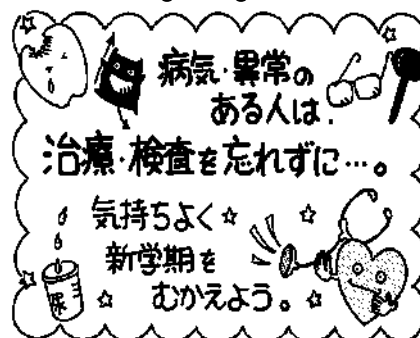 病気・異常の
ある人は、
治療・検査を忘れずに…。
気持ちよく☆
新学期を
むかえよう。
尿